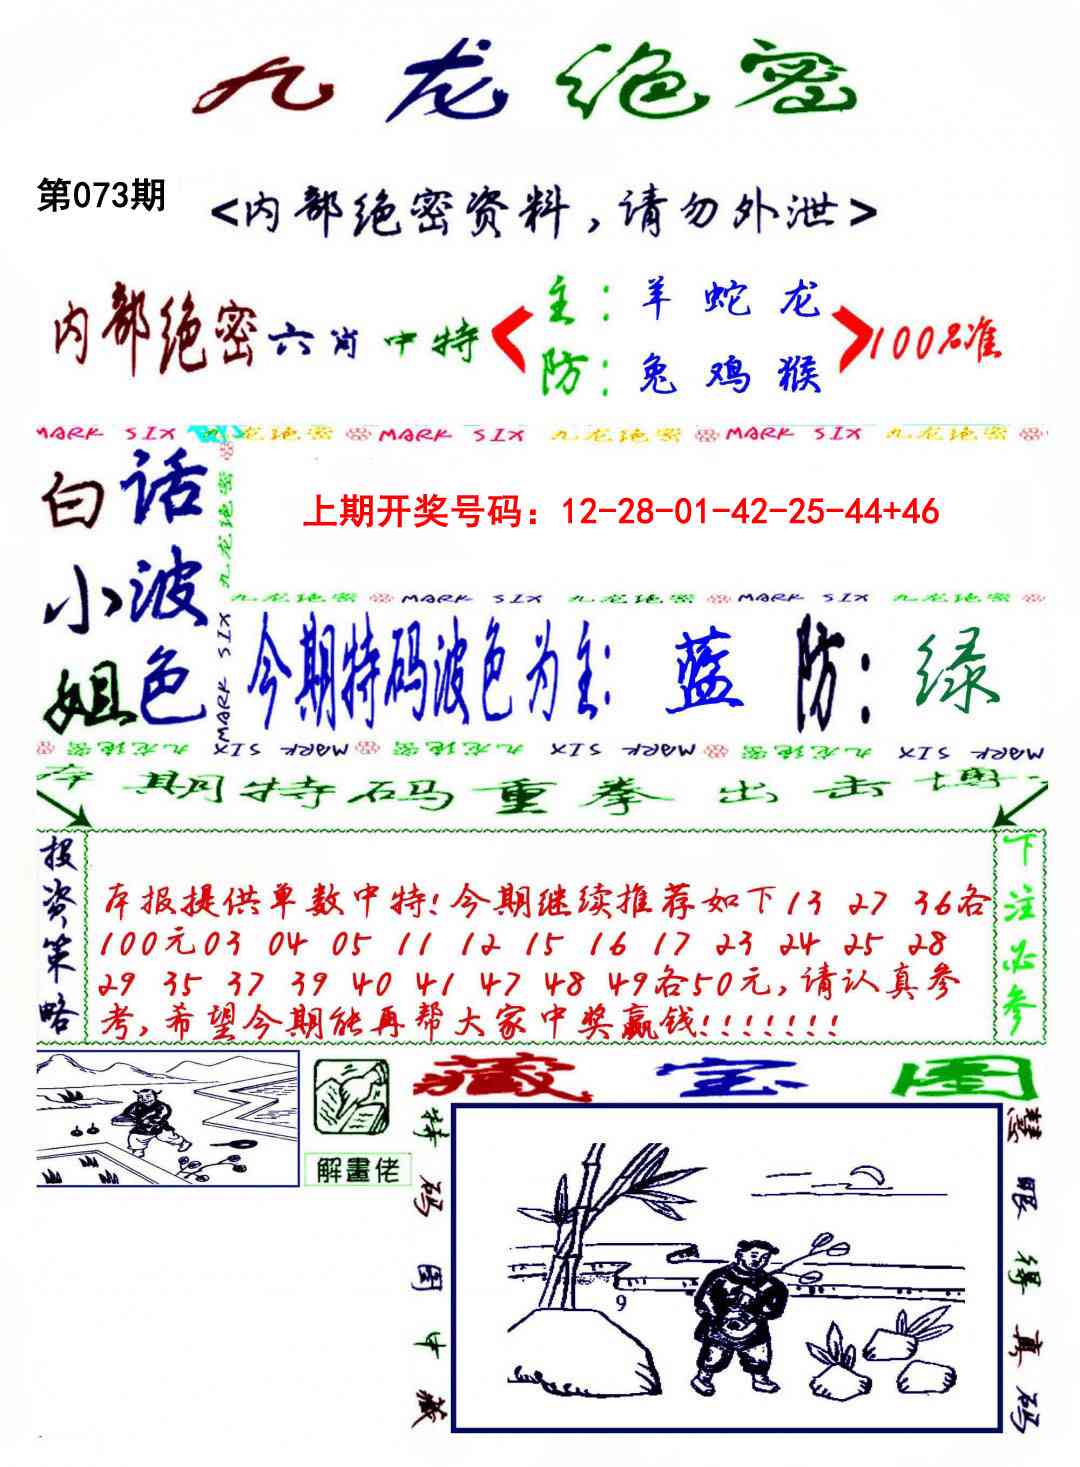 九龙绝密
第073期
<内部绝密资料,请勿外泄>
内部绝密六肖中特
主:羊 蛇 龙
防:兔 鸡 猴
100%准
MARK SIX 九龙绝密 MARK SIX 九龙绝密 MARK SIX 九龙绝密
白话
小波
姐色
九龙绝密
MARK SIX
上期开奖号码：12-28-01-42-25-44+46
九龙绝密 MARK SIX 九龙绝密 MARK SIX 九龙绝密
今期特码波色为主:蓝 防:绿
九龙绝密 MARK SIX 九龙绝密 MARK SIX 九龙绝密 MARK SIX
本期特码重拳出击博
投资策略
本报提供单数中特!今期继续推荐如下13 27 36各
100元03 04 05 11 12 15 16 17 23 24 25 28
29 35 37 39 40 41 47 48 49各50元,请认真参
考,希望今期能再帮大家中奖赢钱!!!!!!!
下注必参
解畫佬
藏宝图
特码图中藏
9
慧眼得真码